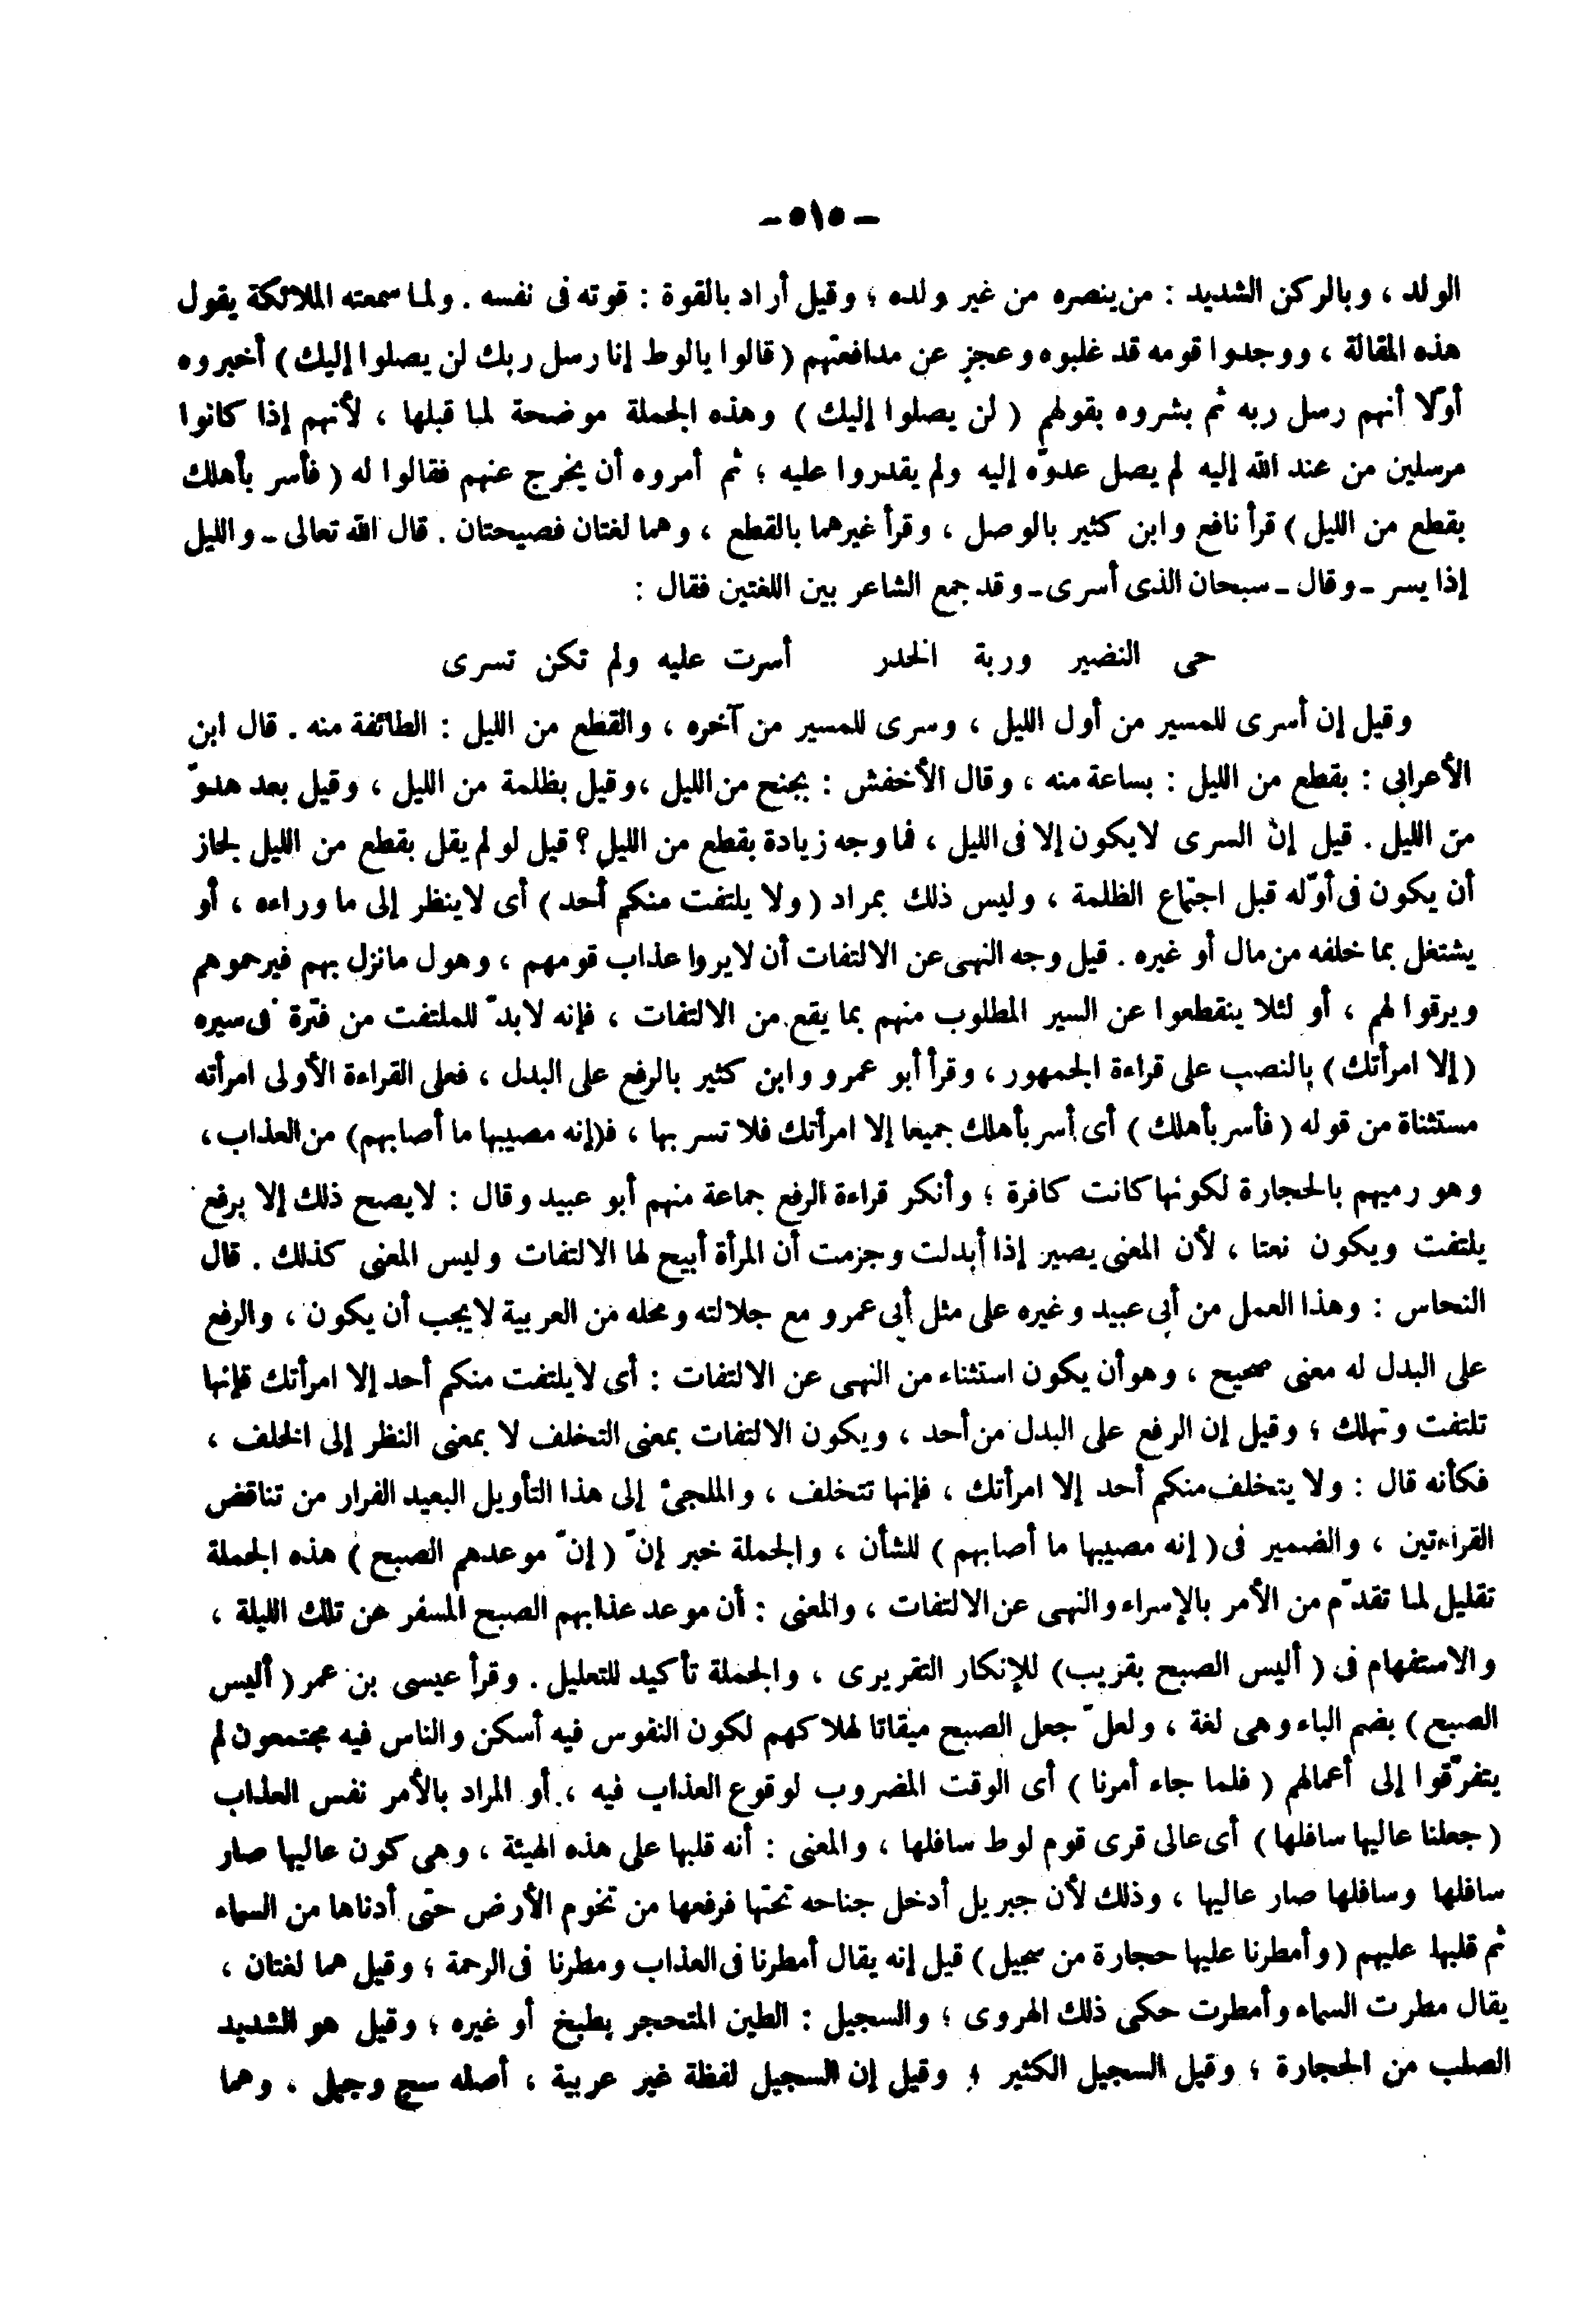 - ٥١٥ -
الولد ، وبالركن الشديد : من ينصره من غير ولده ؛ وقيل أراد بالقوة : قوته فى نفسه . ولما سمعته الملائكة يقول
هذه المقالة ، ووجدوا قومه قد غلبوه وعجز عن مدافعتهم ( قالوا يالوط إنا رسل ربك لن يصلوا إليك ) أخبروه
أوّلا أنهم رسل ربه ثم بشروه بقولهم ( لن يصلوا إليك ) وهذه الجملة موضحة لما قبلها ، لأنهم إذا كانوا
مرسلين من عند الله إليه لم يصل عدوّه إليه ولم يقدروا عليه ؛ ثم أمروه أن يخرج عنهم فقالوا له ( فأسر بأهلك
بقطع من الليل ) قرأ نافع وابن كثير بالوصل ، وقرأ غيرهما بالقطع ، وهما لغتان فصيحتان . قال الله تعالى ـ والليل
إذا يسر ـ وقال ـ سبحان الذى أسرى ـ وقد جمع الشاعر بين اللغتين فقال :
حى النضير وربة الخدر أسرت عليه ولم تكن تسرى
وقيل إن أسرى للمسير من أول الليل ، وسرى للمسير من آخره ، والقطع من الليل : الطائفة منه . قال ابن
الأعرابى : بقطع من الليل : بساعة منه ، وقال الأخفش : بجنح من الليل ، وقيل بظلمة من الليل ، وقيل بعد هدوّ
من الليل . قيل إن السرى لايكون إلا فى الليل ، فما وجه زيادة بقطع من الليل ؟ قيل لو لم يقل بقطع من الليل لجاز
أن يكون فى أوّله قبل اجتماع الظلمة ، وليس ذلك بمراد ( ولا يلتفت منكم أحد ) أى لاينظر إلى ما وراءه ، أو
يشتغل بما خلفه من مال أو غيره . قيل وجه النهى عن الالتفات أن لايروا عذاب قومهم ، وهول مانزل بهم فيرحموهم
ويرقوا لهم ، أو لئلا ينقطعوا عن السير المطلوب منهم بما يقع من الالتفات ، فإنه لابدّ للملتفت من فترة فى سيره
( إلا امرأتك ) بالنصب على قراءة الجمهور ، وقرأ أبو عمرو وابن كثير بالرفع على البدل ، فعلى القراءة الأولى امرأته
مستثناة من قوله ( فأسر بأهلك ) أى أسر بأهلك جميعا إلا امرأتك فلا تسر بها ، فـ(إنه مصيبها ما أصابهم) من العذاب ،
وهو رميهم بالحجارة لكونها كانت كافرة ؛ وأنكر قراءة الرفع جماعة منهم أبو عبيد وقال : لايصح ذلك إلا برفع
يلتفت ويكون نعتا ، لأن المعنى يصير إذا أبدلت وجزمت أن المرأة أبيح لها الالتفات وليس المعنى كذلك . قال
النحاس : وهذا العمل من أبى عبيد وغيره على مثل أبى عمرو مع جلالته ومحله من العربية لايجب أن يكون ، والرفع
على البدل له معنى صحيح ، وهو أن يكون استثناء من النهى عن الالتفات : أى لايلتفت منكم أحد إلا امرأتك فإنها
تلتفت وتهلك ؛ وقيل إن الرفع على البدل من أحد ، ويكون الالتفات بمعنى التخلف لا بمعنى النظر إلى الخلف ،
فكأنه قال : ولا يتخلف منكم أحد إلا امرأتك ، فإنها تتخلف ، والملجئ إلى هذا التأويل البعيد الفرار من تناقض
القراءتين ، والضمير فى ( إنه مصيبها ما أصابهم ) للشأن ، والجملة خبر إنّ ( إنّ موعدهم الصبح ) هذه الجملة
تقليل لما تقدّم من الأمر بالإسراء والنهى عن الالتفات ، والمعنى : أن موعد عذابهم الصبح المسفر عن تلك الليلة ،
والاستفهام فى ( أليس الصبح بقريب ) للإنكار التقريرى ، والجملة تأكيد للتعليل . وقرأ عيسى بن عمر ( أليس
الصبع ) بضم الباء وهى لغة ، ولعلّ جعل الصبح ميقاتا لهلاكهم لكون النفوس فيه أسكن والناس فيه مجتمعون لم
يتفرّقوا إلى أعمالهم ( فلما جاء أمرنا ) أى الوقت المضروب لوقوع العذاب فيه ، أو المراد بالأمر نفس العذاب
( جعلنا عاليها سافلها ) أى عالى قرى قوم لوط سافلها ، والمعنى : أنه قلبها على هذه الهيئة ، وهى كون عاليها صار
سافلها وسافلها صار عاليها ، وذلك لأن جبريل أدخل جناحه تحتها فرفعها من تخوم الأرض حتى أدناها من السماء
ثم قلبها عليهم ( وأمطرنا عليها حجارة من سجيل ) قيل إنه يقال أمطرنا فى العذاب ومطرنا فى الرحمة ؛ وقيل هما لغتان ،
يقال مطرت السماء وأمطرت حكى ذلك الهروى ؛ والسجيل : الطين المتحجر بطبخ أو غيره ؛ وقيل هو الشديد
الصلب من الحجارة ؛ وقيل السجيل الكثير ؛ وقيل إن السجيل لفظة غير عربية ، أصله سج وجيل ، وهما